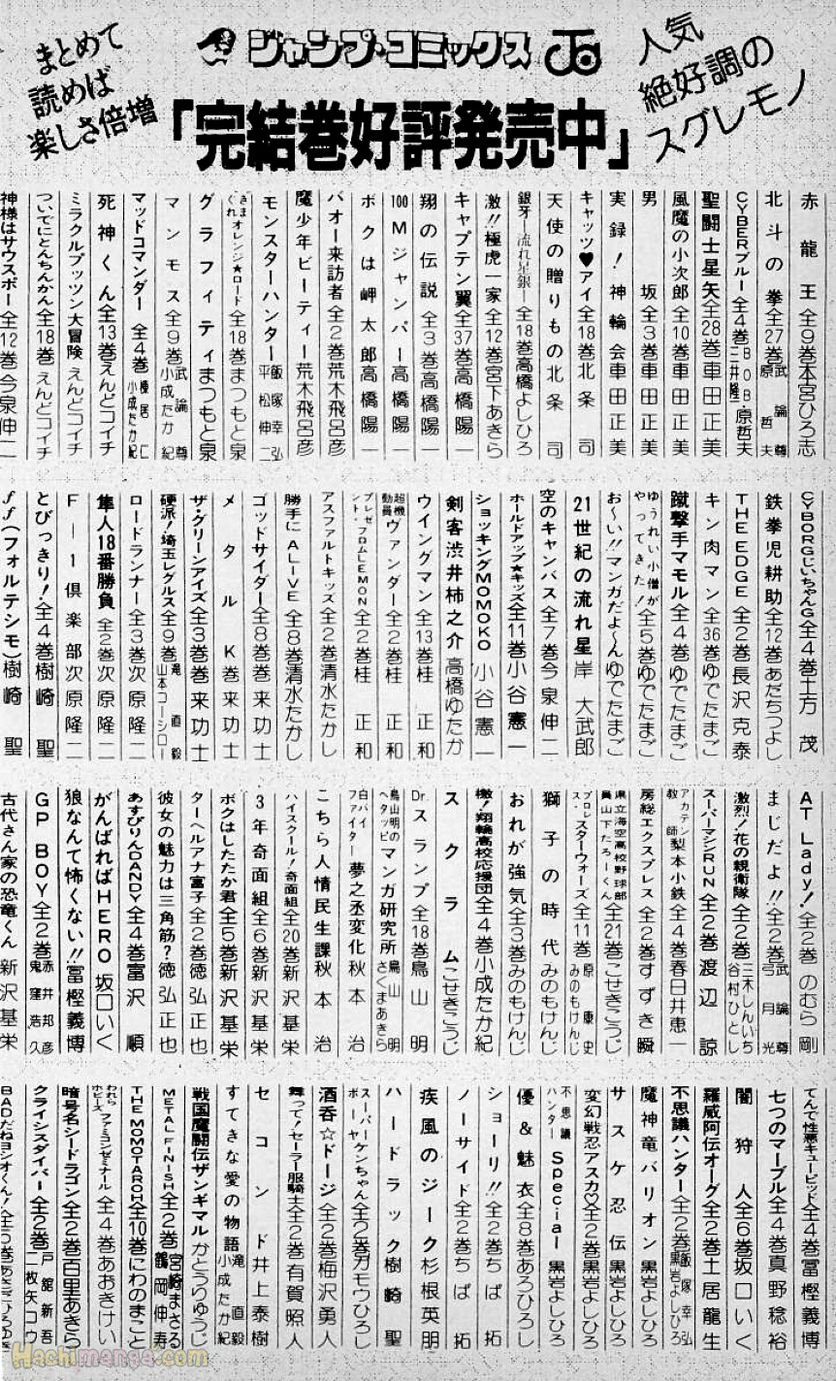 まとめて
読めば
楽しさ倍増
ジャンプ・コミックス
人気
絶好調の
スグレモノ
「完結巻好評発売中」
赤龍王 全9巻 本宮ひろ志
北斗の拳 全27巻 武論尊 原哲夫
CYBERブルー 全4巻 BOB 三井隆一 原哲夫
聖闘士星矢 全28巻 車田正美
風魔の小次郎 全10巻 車田正美
男坂 全3巻 車田正美
実録!神輪会 車田正美
キャッツ♥アイ 全18巻 北条司
天使の贈りもの 北条司
銀牙ー流れ星銀ー 全18巻 高橋よしひろ
激!!極虎一家 全12巻 宮下あきら
キャプテン翼 全37巻 高橋陽一
翔の伝説 全3巻 高橋陽一
100Mジャンパー 高橋陽一
ボクは岬太郎 高橋陽一
バオー来訪者 全2巻 荒木飛呂彦
魔少年ビーティー 荒木飛呂彦
モンスターハンター 飯塚幸弘 平松伸二
きまぐれオレンジ★ロード 全18巻 まつもと泉
グラフィティ まつもと泉
マンモス 全9巻 武論尊 小成たか紀
マッドコマンダー 全4巻 榛居仁 小成たか紀
死神くん 全13巻 えんどコイチ
ミラクルプッツン大冒険 えんどコイチ
ついでにとんちんかん 全18巻 えんどコイチ
神様はサウスポー 全12巻 今泉伸二
CYBORGじいちゃんG 全4巻 土方茂
鉄拳児耕助 全12巻 あだちつよし
THE EDGE 全2巻 長沢克泰
キン肉マン 全36巻 ゆでたまご
蹴撃手マモル 全4巻 ゆでたまご
ゆうれい小僧がやってきた! 全5巻 ゆでたまご
お〜い!!マンガだよ〜ん ゆでたまご
21世紀の流れ星 岸大武郎
空のキャンバス 全7巻 今泉伸二
ホールドアップ★キッズ 全11巻 小谷憲一
ショッキングMOMOKO 小谷憲一
剣客渋井柿之介 高橋ゆたか
ウイングマン 全13巻 桂正和
超機動員ヴァンダー 全2巻 桂正和
プレゼント・フロムLEMON 全2巻 桂正和
アスファルトキッズ 全2巻 清水たかし
勝手にALIVE 全8巻 清水たかし
ゴッドサイダー 全8巻 巻来功士
メタルK 巻来功士
ザ・グリーンアイズ 全3巻 巻来功士
硬派!埼玉レグルス 全9巻 滝直毅 山本コーシロー
ロードランナー 全3巻 次原隆二
隼人18番勝負 全2巻 次原隆二
F-1倶楽部 次原隆二
とびっきり! 全4巻 樹崎聖
ff(フォルテシモ) 樹崎聖
AT Lady! 全2巻 のむら剛
まじだよ!! 全2巻 武論尊 弓月光
激烈!花の親衛隊 全2巻 三木しんいち 谷村ひとし
スーパーマシンRUN 全2巻 渡辺諒
アカテン教師梨本小鉄 全4巻 春日井恵一
房総エクスプレス 全2巻 すずき瞬
県立海空高校野球部員山下たろーくん 全21巻 こせきこうじ
プロレス・スターウォーズ 全11巻 原康史 みのもけんじ
獅子の時代 みのもけんじ
おれが強気 全3巻 みのもけんじ
檄!翔輪高校応援団 全4巻 小成たか紀
スクラム こせきこうじ
Dr.スランプ 全18巻 鳥山明
鳥山明のヘタッピマンガ研究所 鳥山明 さくまあきら
白バイファイター夢之丞変化 秋本治
こちら人情民生課 秋本治
ハイスクール!奇面組 全20巻 新沢基栄
3年奇面組 全6巻 新沢基栄
ボクはしたたか君 全5巻 新沢基栄
ターヘルアナ富子 全2巻 徳弘正也
彼女の魅力は三角筋? 徳弘正也
あすびりんDANDY 全4巻 富沢順
がんばればHERO 坂口いく
狼なんて怖くない!! 冨樫義博
GP BOY 全2巻 赤井邦彦 鬼窪浩久
古代さん家の恐竜くん 新沢基栄
てんで性悪キューピッド 全4巻 冨樫義博
七つのマーブル 全4巻 真野稔裕
闇狩人 全6巻 坂口いく
羅威阿伝オーグ 全2巻 土居龍生
不思議ハンター 全2巻 飯塚幸弘 黒岩よしひろ
魔神竜バリオン 黒岩よしひろ
サスケ忍伝 黒岩よしひろ
変幻戦忍アスカ♡ 全2巻 黒岩よしひろ
不思議ハンターSpecial 黒岩よしひろ
優&魅衣 全8巻 あろひろし
ショーリ!! 全2巻 ちば拓
ノーサイド 全2巻 ちば拓
疾風のジーク 杉根英明
ハードラック 樹崎聖
スーパーケンちゃんボーヤ 全2巻 ガモウひろし
酒呑☆ドージ 全2巻 梅沢勇人
舞って!セーラー服騎士 全2巻 有賀照人
セコンド 井上泰樹
すてきな愛の物語 滝直毅 小成たか紀
戦国魔闘伝ザンギマル かとうりゅうじ
METAL FINISH 全2巻 宮崎まさる 鶴岡伸寿
THE MOMOTAROH 全10巻 にわのまこと
われらホビーズ ファミコンゼミナール 全4巻 あおきけい
暗号名シードラゴン 全2巻 百里あきら
クライシスダイバー 全2巻 戸舘新吾 二枚矢コウ
BADだねヨシオくん! 全5巻 あさひろゆき
Hachimanga.com